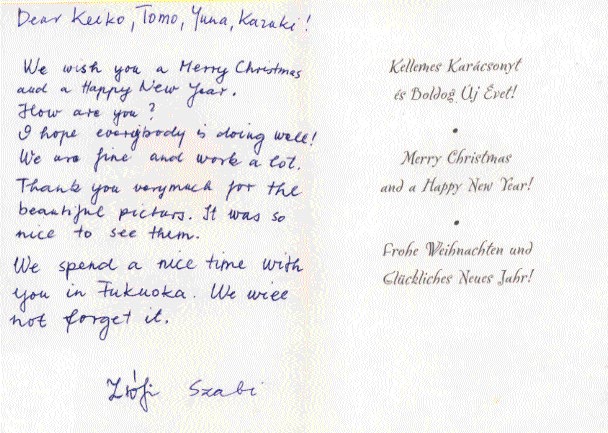 Dear Keiko, Tomo, Yuna, Kazuki!
We wish you a Merry Christmas
and a Happy New Year.
How are you?
I hope everybody is doing well!
We are fine and work a lot.
Thank you verymuch for the
beautiful picturs. It was so
nice to see them.
We spend a nice time with
you in Fukuoka. We will
not forget it.
Zsófi Szabi
Kellemes Karácsonyt
és Boldog Új Évet!
•
Merry Christmas
and a Happy New Year!
•
Frohe Weihnachten und
Glückliches Neues Jahr!